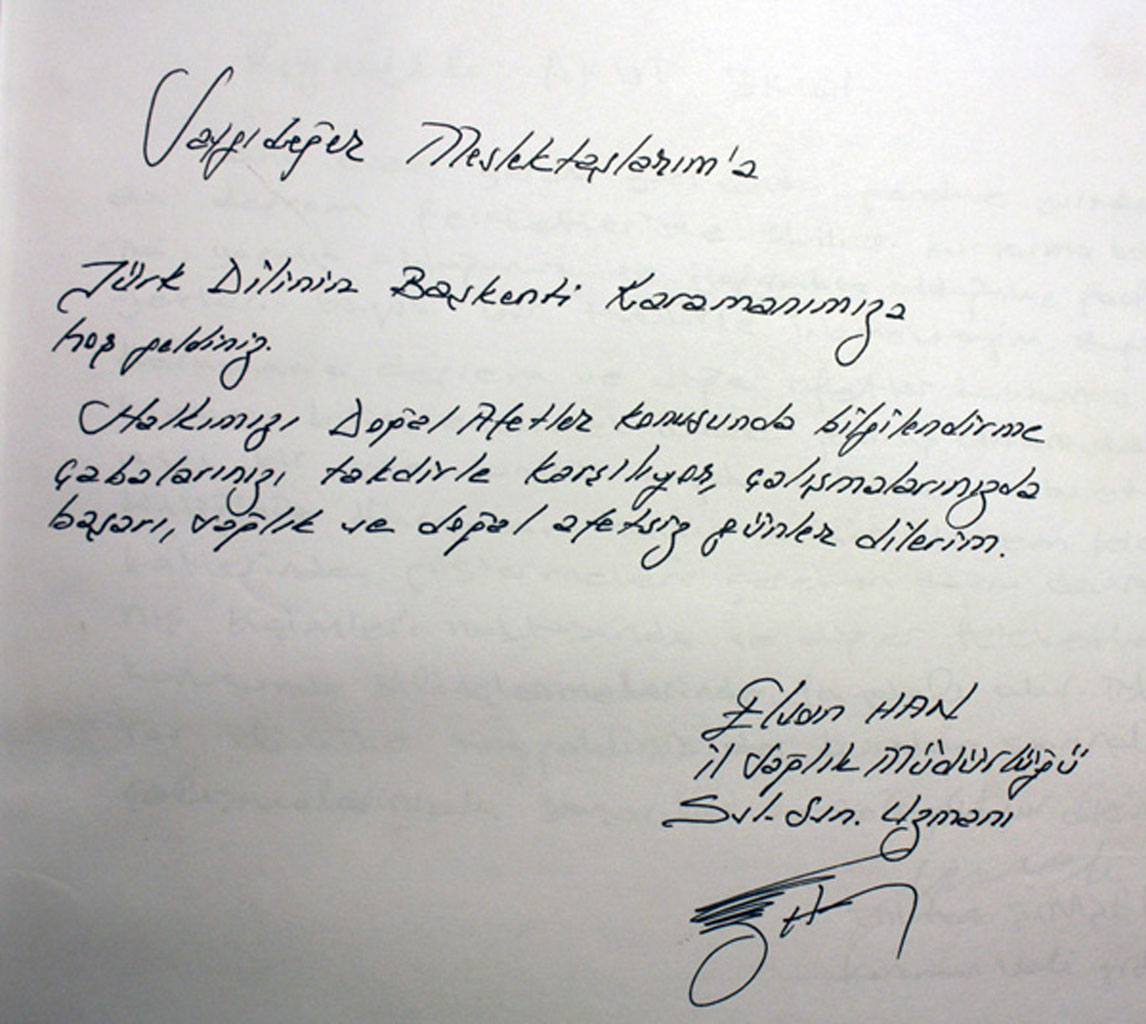 Saygıdeğer Meslektaşlarım'a
Türk Dilinin Başkenti Karamanımıza
hoş geldiniz.
Halkımızı Doğal Afetler konusunda bilgilendirme
çabalarınızı takdirle karşılıyor, çalışmalarınızda
başarı, sağlık ve doğal afetsiz günler dilerim.
Elvan HAN
il Sağlık Müdürlüğü
Svl. Svn. Uzmanı